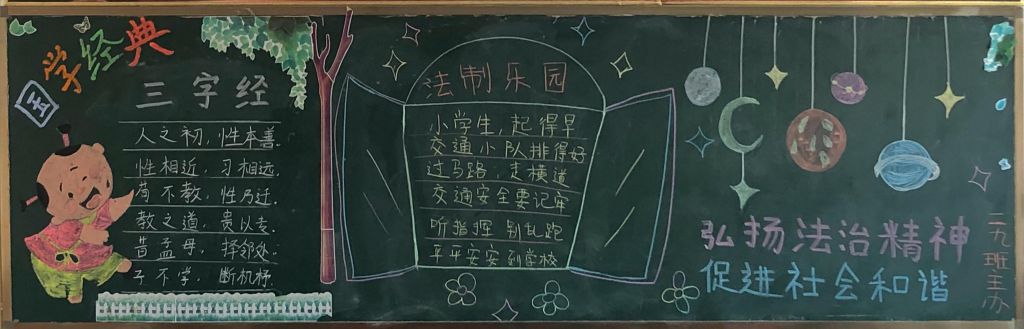 国学经典
三字经
人之初，性本善.
性相近，习相远.
苟不教，性乃迁.
教之道，贵以专.
昔孟母，择邻处.
子不学，断机杼
法制乐园
小学生，起得早
交通小队排得好
过马路，走横道
交通安全要记牢
听指挥 别乱跑
平平安安到学校
弘扬法治精神
促进社会和谐
二九班主办